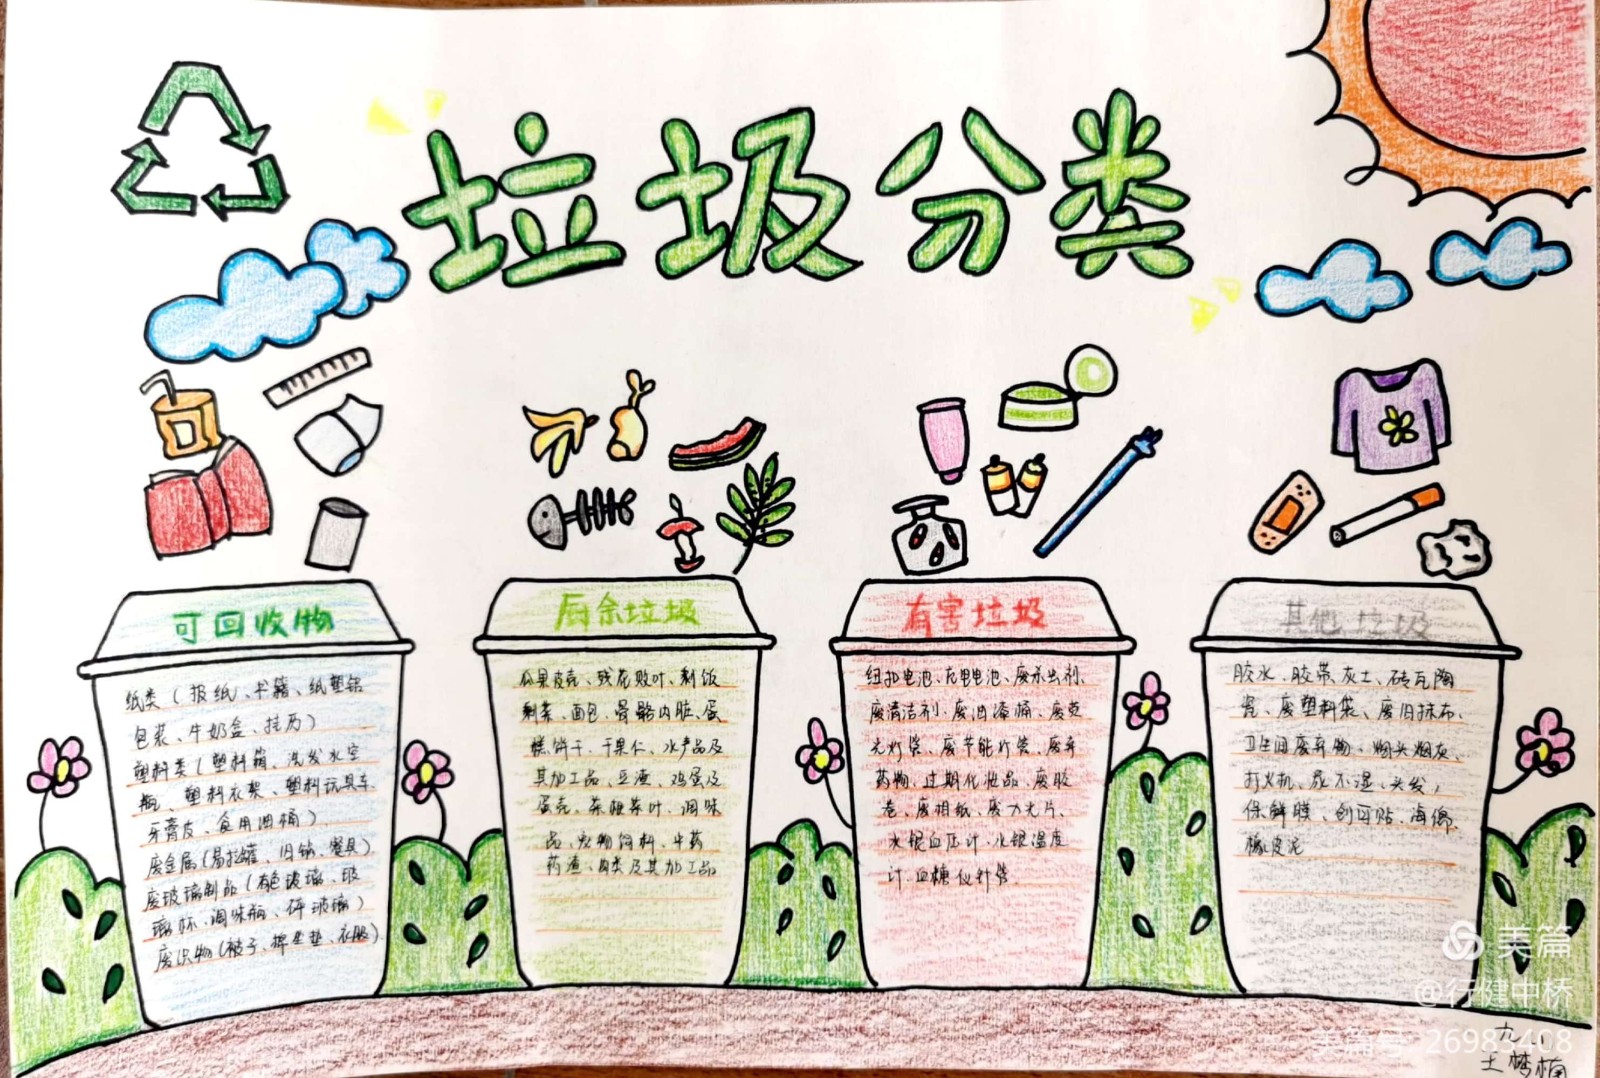 垃圾分类
可回收物
纸类(报纸、书籍、纸塑铝
包装、牛奶盒、挂历)
塑料类(塑料箱、洗发水空
瓶、塑料衣架、塑料玩具车
牙膏皮、食用油桶)
废金属(易拉罐、旧锅、餐具)
废玻璃制品(有色玻璃、玻
璃杯、调味瓶、碎玻璃)
废织物(被子、棉坐垫、衣服)
厨余垃圾
瓜果皮壳、残花败叶、剩饭
剩菜、面包、骨骼内脏、蛋
糕饼干、干果仁、水产品及
其加工品、豆渣、鸡蛋及
蛋壳、菜根菜叶、调味
品、宠物饲料、中药
药渣、肉类及其加工品
有害垃圾
纽扣电池、充电电池、废杀虫剂、
废清洁剂、废旧漆桶、废荧
光灯管、废节能灯管、废弃
药物、过期化妆品、废胶
卷、废相纸、废力光片、
水银血压计、水银温度
计、血糖仪针管、
其他垃圾
胶水、胶带、灰土、砖瓦陶
瓷、废塑料袋、废旧抹布、
卫生间废弃物、烟头烟灰、
打火机、尿不湿、头发,
保鲜膜、创可贴、海绵
橡皮泥
美篇
@行健中桥
美篇号 26983408